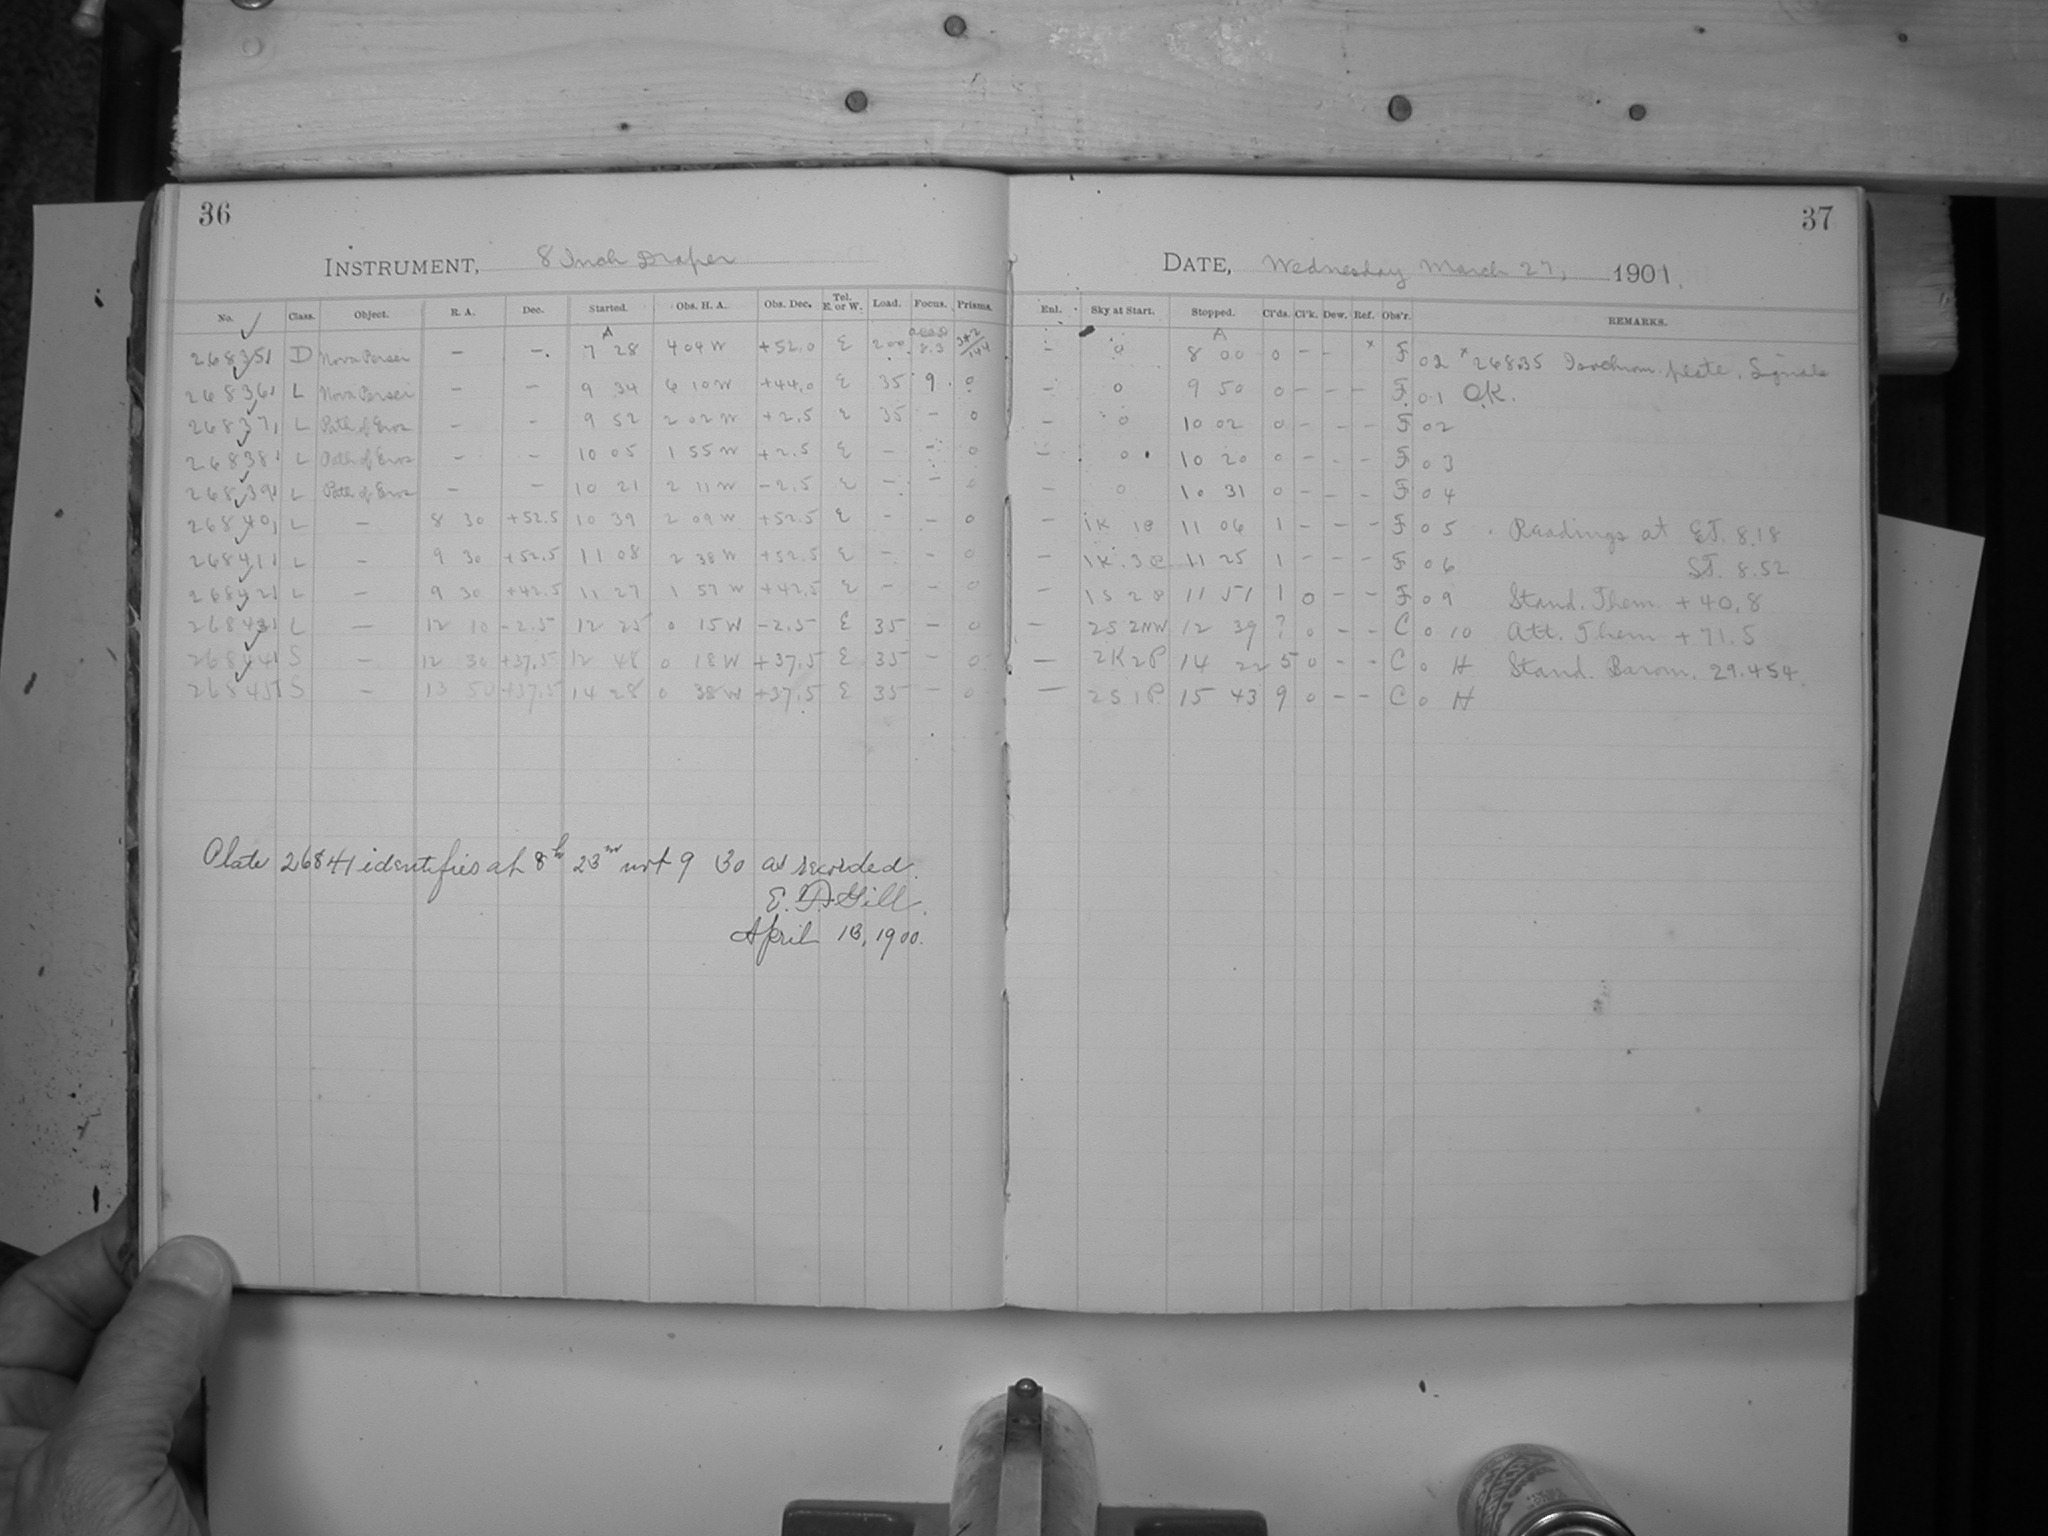 36
INSTRUMENT, 8 Inch Draper
No. Class. Object. R. A. Dec. Started. Obs. H. A. Obs. Dec. Tel. E. or W. Load. Focus. Prisms.
A
26835 D Nova Persei — — 7 28 4 04 W +52.0 E 200 8.3
26836 L Nova Persei — — 9 34 6 10 W +44.0 E 35 9 0
26837 L Path of Eros — — 9 52 2 02 W +2.5 E 35 — 0
26838 L Path of Eros — — 10 05 1 55 W +2.5 E — — 0
26839 L Path of Eros — — 10 21 2 11 W -2.5 E — — 0
26840 L — 8 30 +52.5 10 39 2 09 W +52.5 E — — 0
26841 L — 9 30 +52.5 11 08 2 38 W +52.5 E — — 0
26842 L — 9 30 +42.5 11 27 1 57 W +42.5 E — — 0
26843 L — 12 10 -2.5 12 25 0 15 W -2.5 E 35 — 0
26844 S — 12 30 +37.5 12 48 0 18 W +37.5 E 35 — 0
26845 S — 13 50 +37.5 14 28 0 38 W +37.5 E 35 — 0
Plate 26841 identifies at 8h 23m not 9 30 as recorded.
E. Gill.
April 13, 1900.
37
DATE, Wednesday March 27, 1901.
Enl. Sky at Start. Stopped. Cl'ds. Cl'k. Dew. Ref. Obs'r. REMARKS.
A
— 0 8 00 0 — — x F 02 x 26835 Isochrom. plate. Signals
— 0 9 50 0 — — — F 01 OK.
— 0 10 02 0 — — — F 02
— 0 10 20 0 — — — F 03
— 0 10 31 0 — — — F 04
— 1K 1 11 06 1 — — — F 05 Readings at ET. 8.18
— 1K 3 11 25 1 — — — F 06 ST. 8.52
— 1S 2 11 51 1 0 — — F 09 Stand. Them. +40.8
— 2S 2NW 12 39 ? 0 — — C 0 10 Att. Them +71.5
— 2K 2P 14 22 5 0 — — C 0 H Stand. Barom. 29.454
— 2S 1P 15 43 9 0 — — C 0 H